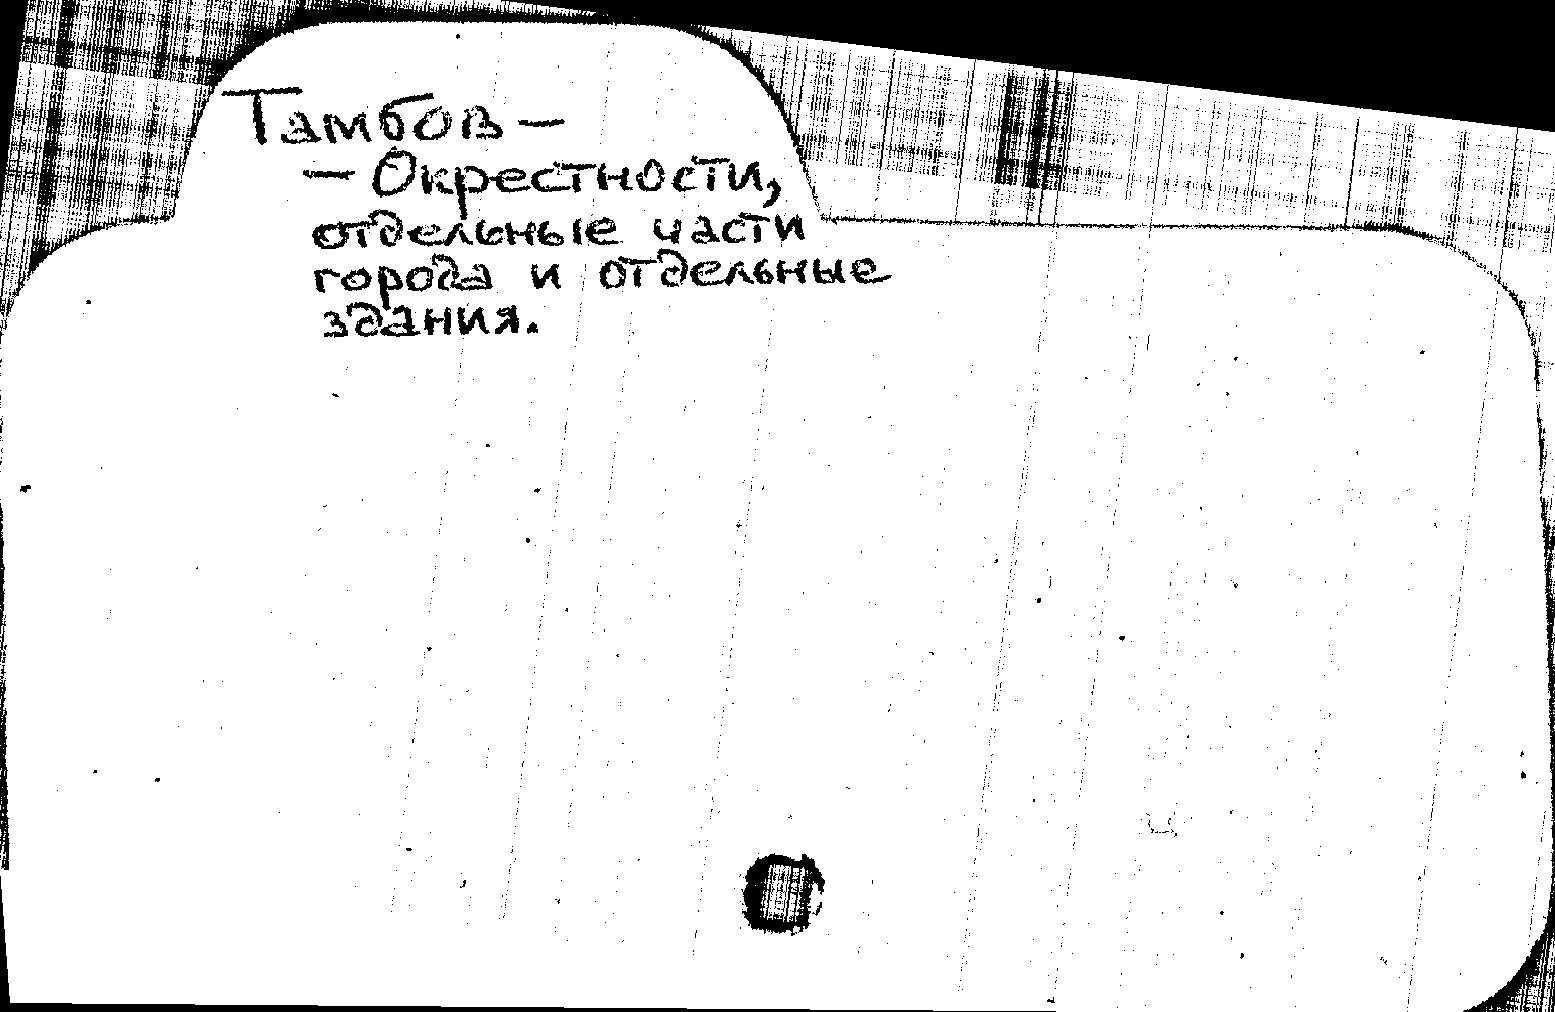 Тамбов —
— Окрестности,
отдельные части
города и отдельные
здания.